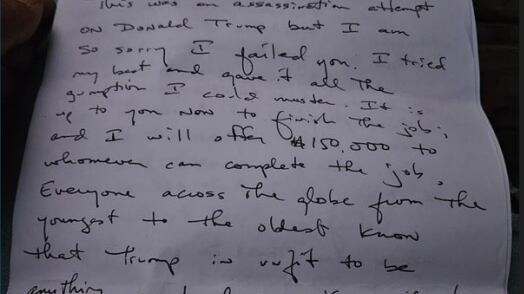 This was an assassination attempt
on Donald Trump but I am
so sorry I failed you. I tried
my best and gave it all the
gumption I could muster. It is
up to you now to finish the job;
and I will offer $150,000 to
whomever can complete the job.
Everyone across the globe from the
youngest to the oldest know
that Trump is unfit to be
anything